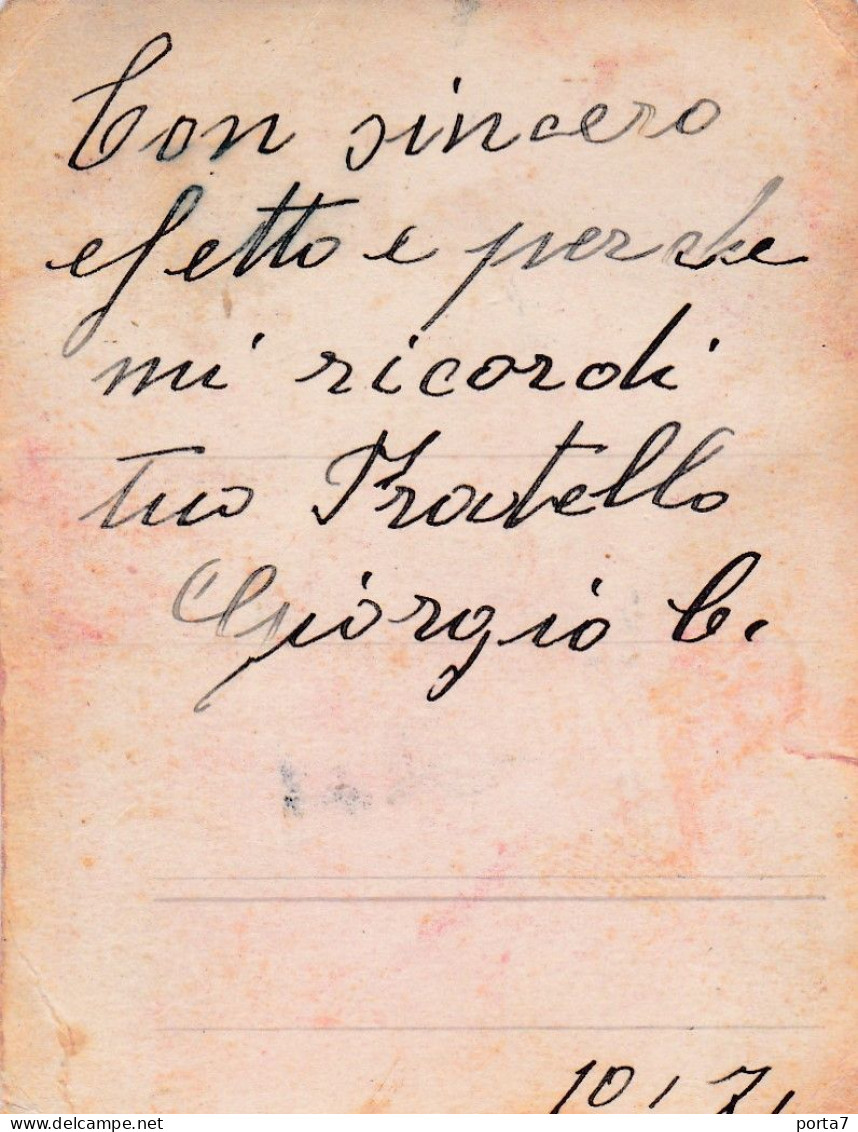 Con sincero
effetto e perche
mi ricordi
tuo Fratello
Giorgio C.
10, 7,
delcampe.net
porta7